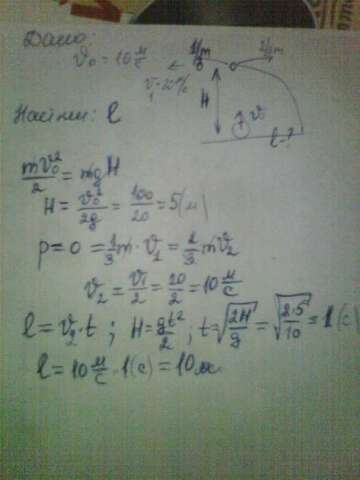 Дано:
v₀ = 10 м/с
1/3m 2/3m
v₁ = 20 м/с
H v₀ l-?
Найти: l
mv₀²/2 = mgH
H = v₀²/2g = 100/20 = 5(м)
p = 0 = 1/3 m · v₁ = 2/3 mv₂
v₂ = v₁/2 = 20/2 = 10 м/с
l = v₂ · t ; H = gt²/2 ; t = √(2H/g) = √(2·5/10) = 1(с)
l = 10 м/с · 1(с) = 10м.